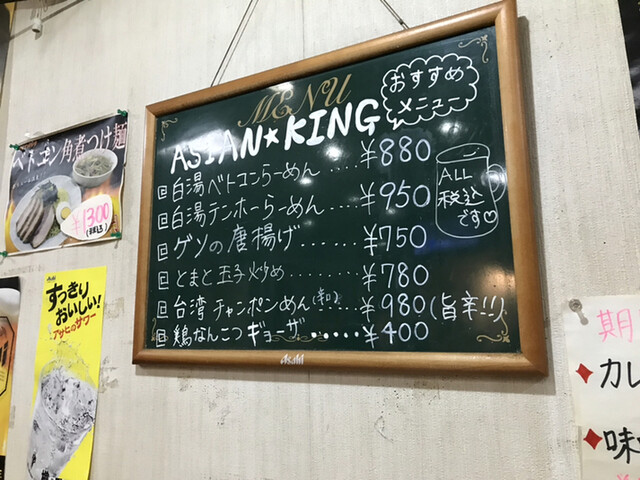 MENU
ASIAN★KING
おすすめ
メニュー
白湯ベトコンらーめん....¥880
白湯テンホーらーめん ¥950
ゲソの唐揚げ......¥750
とまと玉子炒め......¥780
台湾チャンポンめん(辛口)¥980(旨辛!!)
鶏なんこつギョーザ.....¥400
ALL
税込
です♡
Asahi
ベトコン角煮つけ麺
¥1300
(税込)
Asahi
すっきり
おいしい!
アサヒのサワー
期
◆カレ
◆味